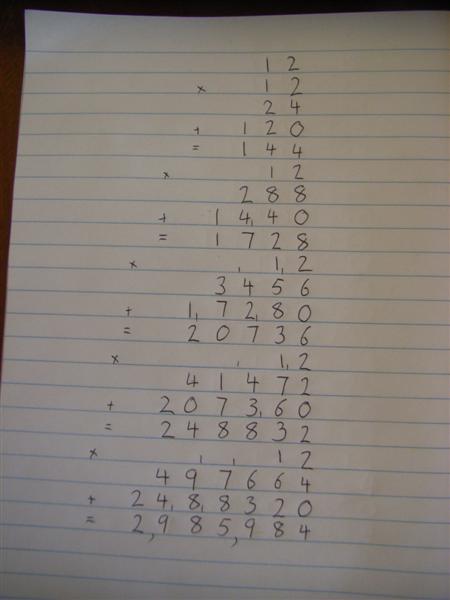 12
× 12
24
+ 120
= 144
× 12
288
+ 14,40
= 1728
× , 1,2
3456
+ 1,72,80
= 20736
× , 1,2
41472
+ 2073,60
= 248832
× , , 12
497664
+ 24,8,8320
= 2,985,984